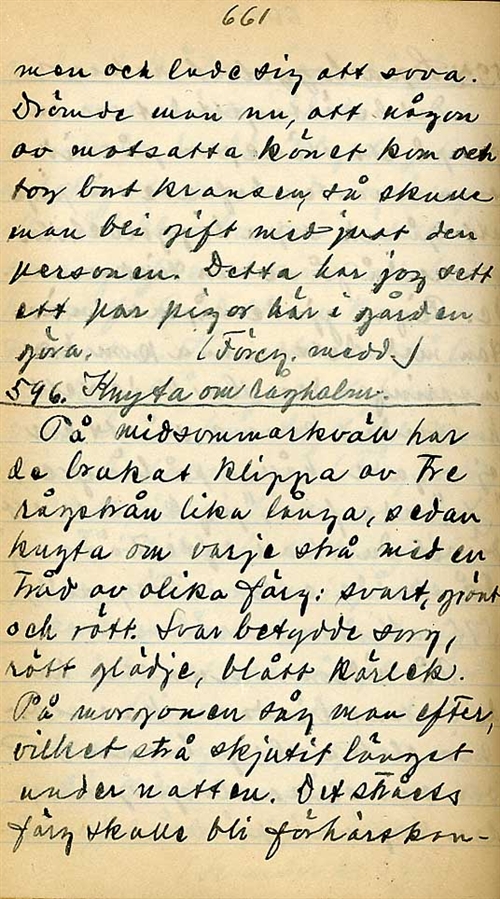 661
men och lade sig att sova.
Drömde man nu, att någon
av motsatta könet kom och
tog bort kransen, så skulle
man bli gift med just den
personen. Detta har jag sett
ett par pigor här i gården
göra. (Föreg. medd.)
596. Knyta om råghalm.
På midsommarkväll har
de brukat klippa av tre
rågstrån lika långa, sedan
knyta om varje strå med en
tråd av olika färg: svart, grönt
och rött. Svar betydde sorg,
rött glädje, blått kärlek.
På morgonen såg man efter,
vilket strå skjutit längst
under natten. Det stråets
färg skulle bli förhärskan-